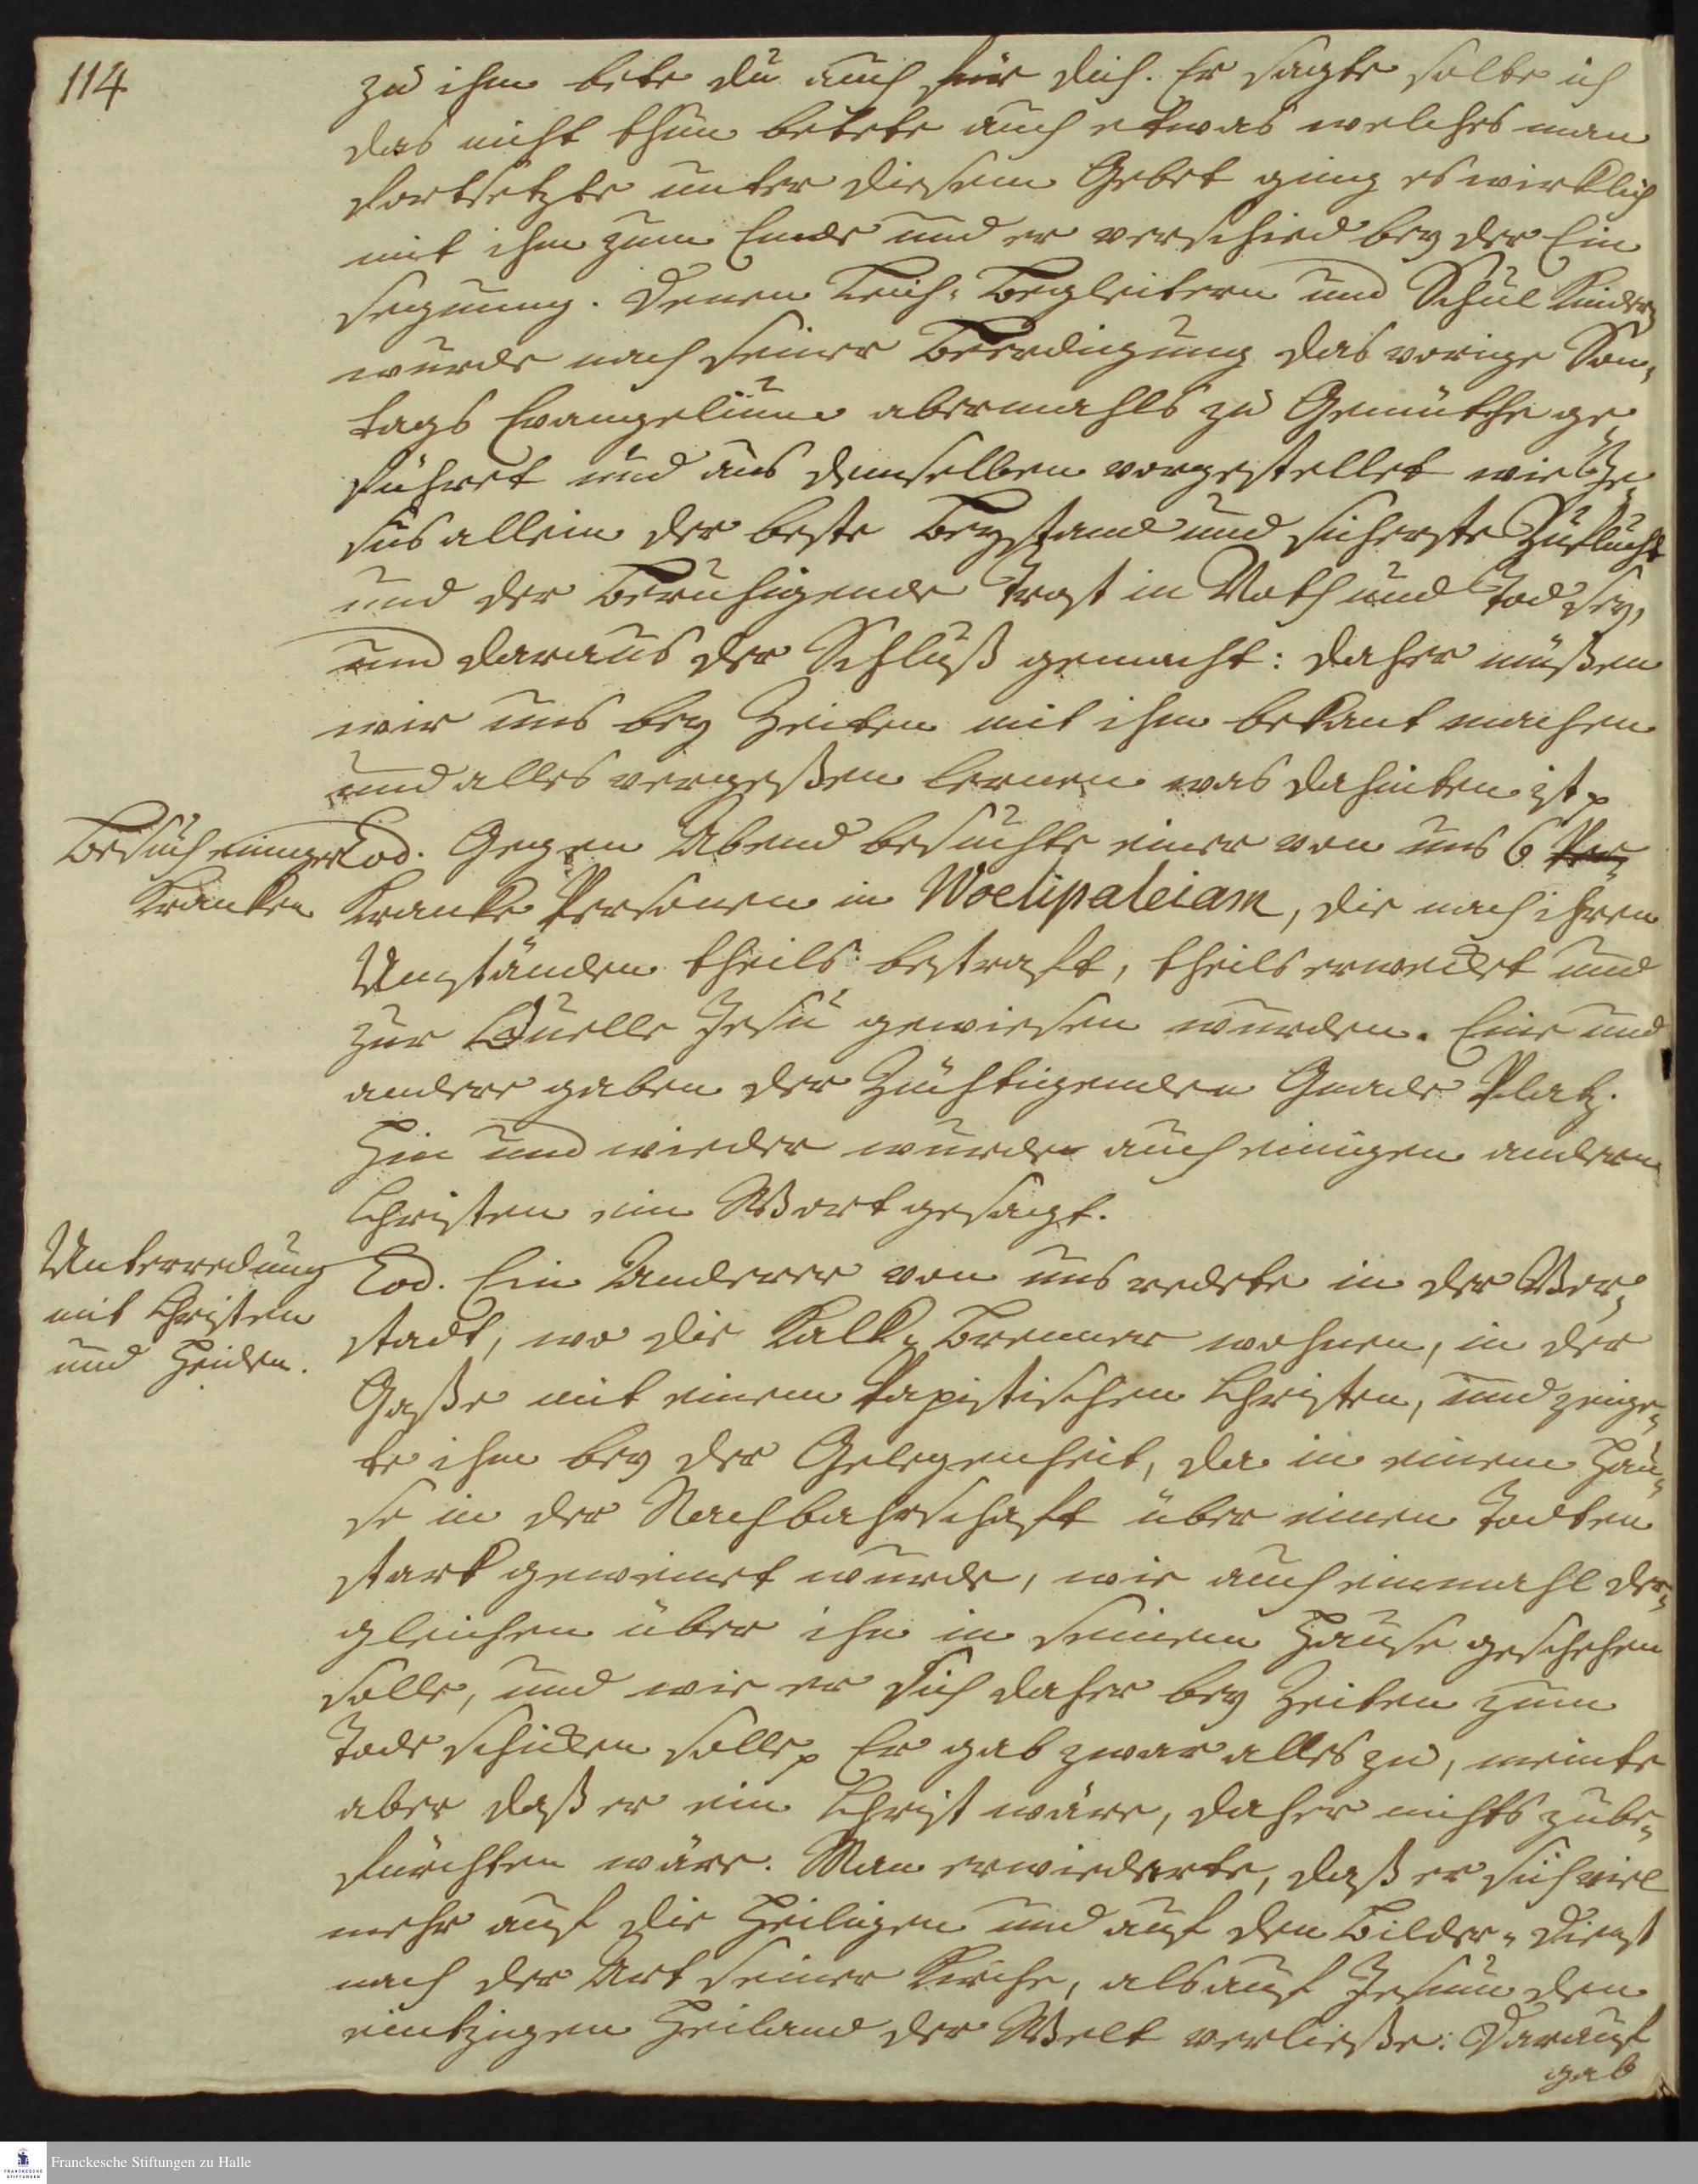 114
zu ihm bete du auch für dich. Er sagte solte ich
das nicht thun betete auch etwas welches man
fortsetzte unter diesem Gebet ging es wircklich
mit ihm zum Ende und er verschied bey der Ein
segnung. Denen Leich-Begleitern und Schul Kindern
wurde nach seiner Beerdigung das vorige Son-
tags Evangelium abermahls zu Gemüthe ge-
führet und aus demselben vorgestellet wie Je-
sus allein der beste Beystand und sicherste Zuflucht
und der Beruhigende Trost in Noth und Tod sey,
und daraus der Schluß gemacht: daher müßen
wir uns bey Zeiten mit ihm bekant machen
und alles vergeßen lernen was dahinten ist
Besuch einiger
Krancken
Eod. Gegen Abend besuchte einer von uns 6 Per-
Krancke Personen in Woelipaleiam, die nach ihren
Umständen theils bestraft, theils erwecket und
zur Quelle Jesu gewiesen wurden. Eine und
andere gaben der Züchtigenden Gnade Platz.
Hin und wieder wurde auch einigen andern
Christen ein Wort gesagt.
Unterredung
mit Christen
und Heiden.
Eod. Ein Anderer von uns redete in der Vor-
stadt, wo die Kalck-Brenner wohnen, in der
Gaße mit einem Papistischen Christen, und zeige-
te ihm bey der Gelegenheit, da in einem Hau-
se in der Nachbahrschaft über einen Todten
starck geweinet wurde, wie auch einmahl der-
gleichen über ihn in seinem Hause geschehen
solle, und wie er sich daher bey Zeiten zum
Tode schicken solle Er gab zwar alles zu, meinte
aber daß er ein Christ wäre, daher nichts zu be-
fürchten wäre. Man erwiederte, daß er sich viel
mehr auf die Heiligen und auf den Bilder-Dienst
nach der Art seiner Kirche, als auf Jesum den
eintzigen Heiland der Welt verließe: Darauf
gab
Franckesche Stiftungen zu Halle